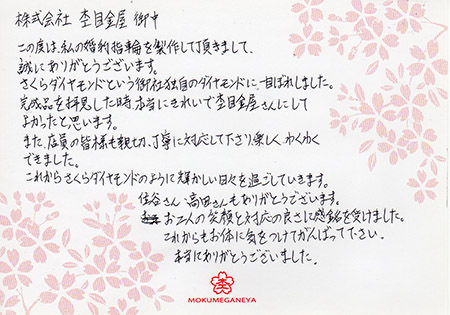 株式会社 杢目金屋 御中
この度は、私の婚約指輪を製作して頂きまして、
誠にありがとうございます。
さくらダイヤモンドという御社独自のダイヤモンドに一目ぼれしました。
完成品を拝見した時、本当にきれいで杢目金屋さんにして
よかったと思います。
また、店員の皆様も親切、丁寧に対応して下さり楽しく、わくわく
できました。
これからさくらダイヤモンドのように輝かしい日々を過ごしていきます。
住谷さん、高田さんもありがとうございます。
お二人の笑顔と対応の良さに感銘を受けました。
これからもお体に気をつけてがんばって下さい。
本当にありがとうございました。
杢
MOKUMEGANEYA